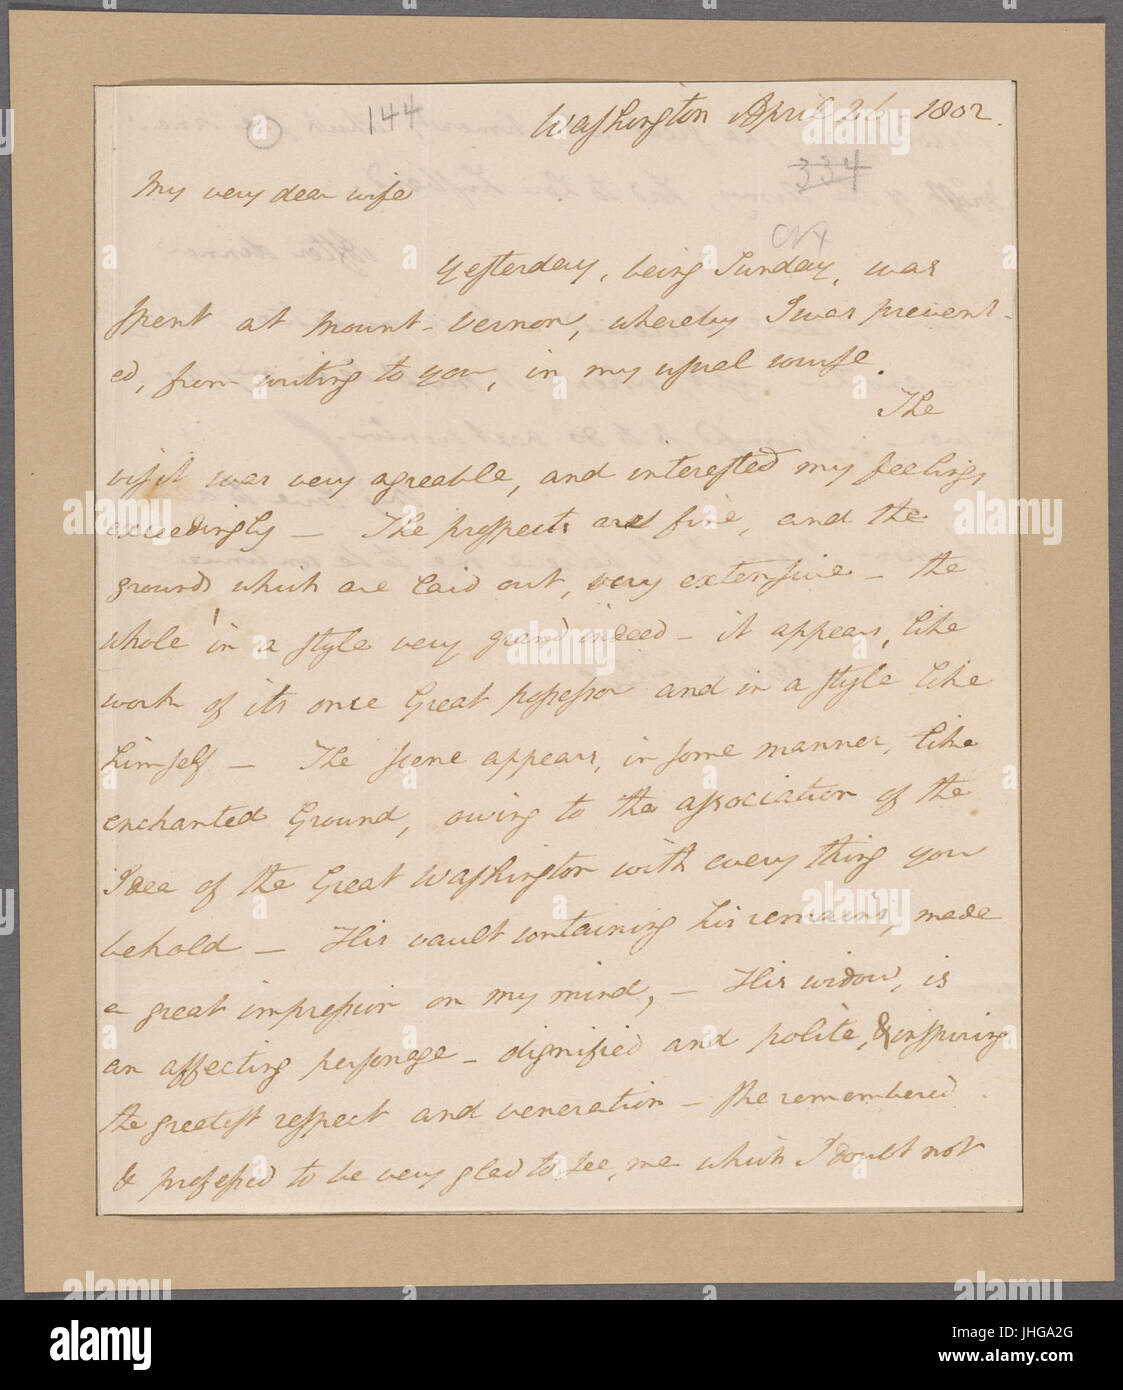 144
Washington April 26 - 1802.
334
My very dear wife
Yesterday, being Sunday, was
spent at Mount-Vernon, whereby I was prevent-
ed, from writing to you, in my usual course.
The
visit was very agreeable, and interested my feelings
exceedingly — The prospects are fine, and the
grounds which are laid out, very extensive — the
whole in a style very grand indeed — it appears, like
work of its once Great possessor and in a style like
himself — The scene appears, in some manner, like
enchanted Ground, owing to the association of the
Idea of the Great Washington with every thing you
behold — His vault containing his remains, made
a great impression on my mind, — His widow, is
an affecting personage — dignified and polite, & inspiring
the greatest respect and veneration — she remembered
& professed to be very glad to see, me which I doubt not
alamy stock photo
JHGA2G
www.alamy.com